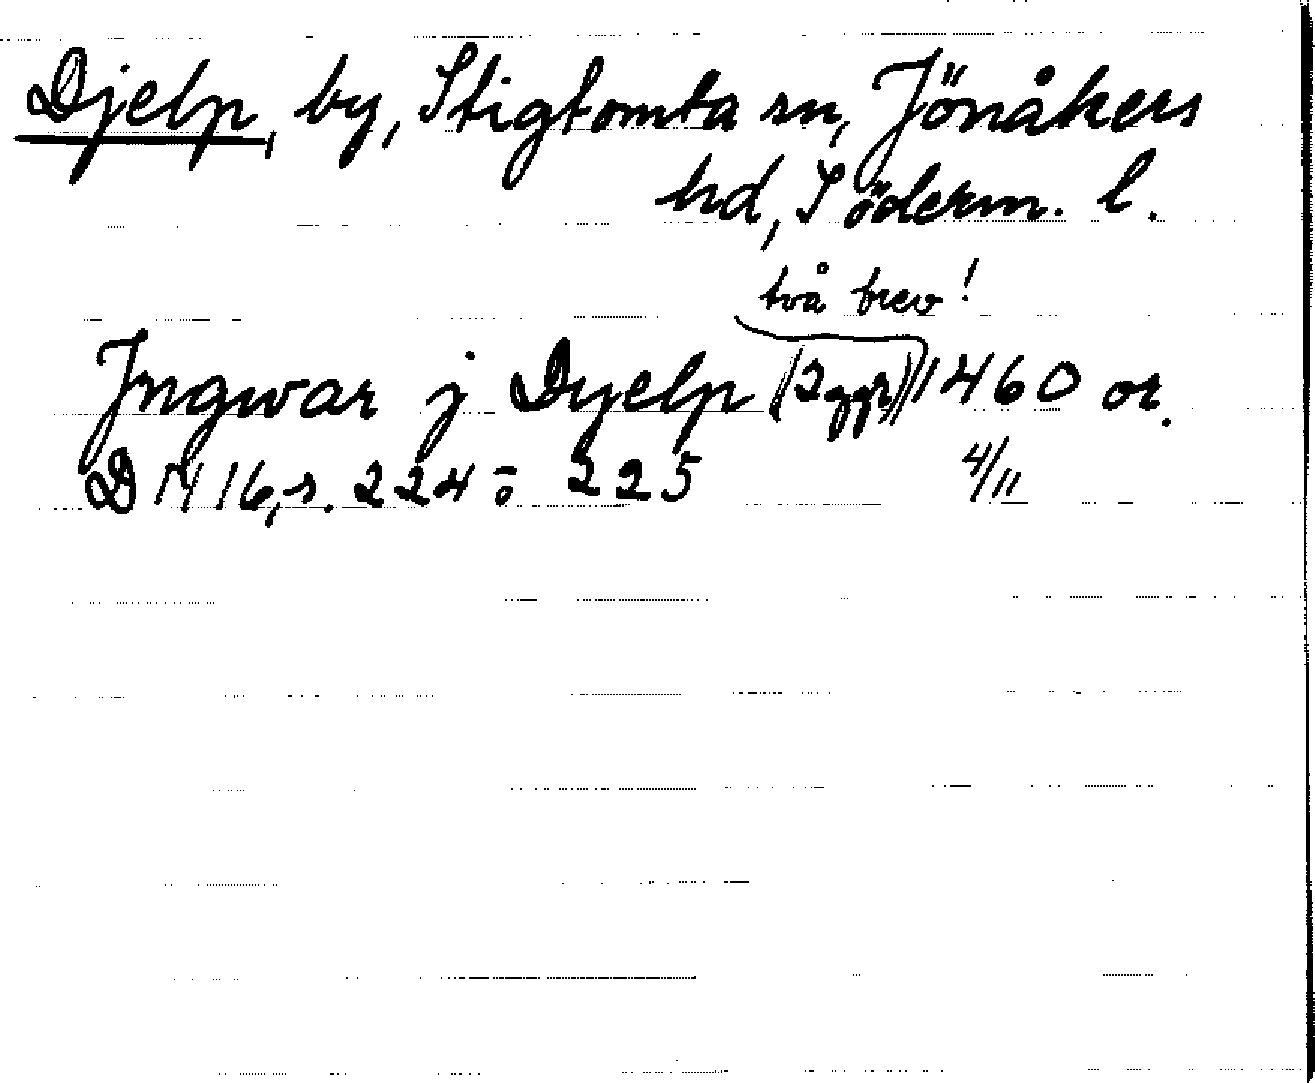 Djelp, by, Stigtomta sn, Jönåkers
hd, Söderm. l.
två brev!
Jngwar j Dyelp (2 ggr) 1460 or.
D 1416, s. 224 o 225 4/11